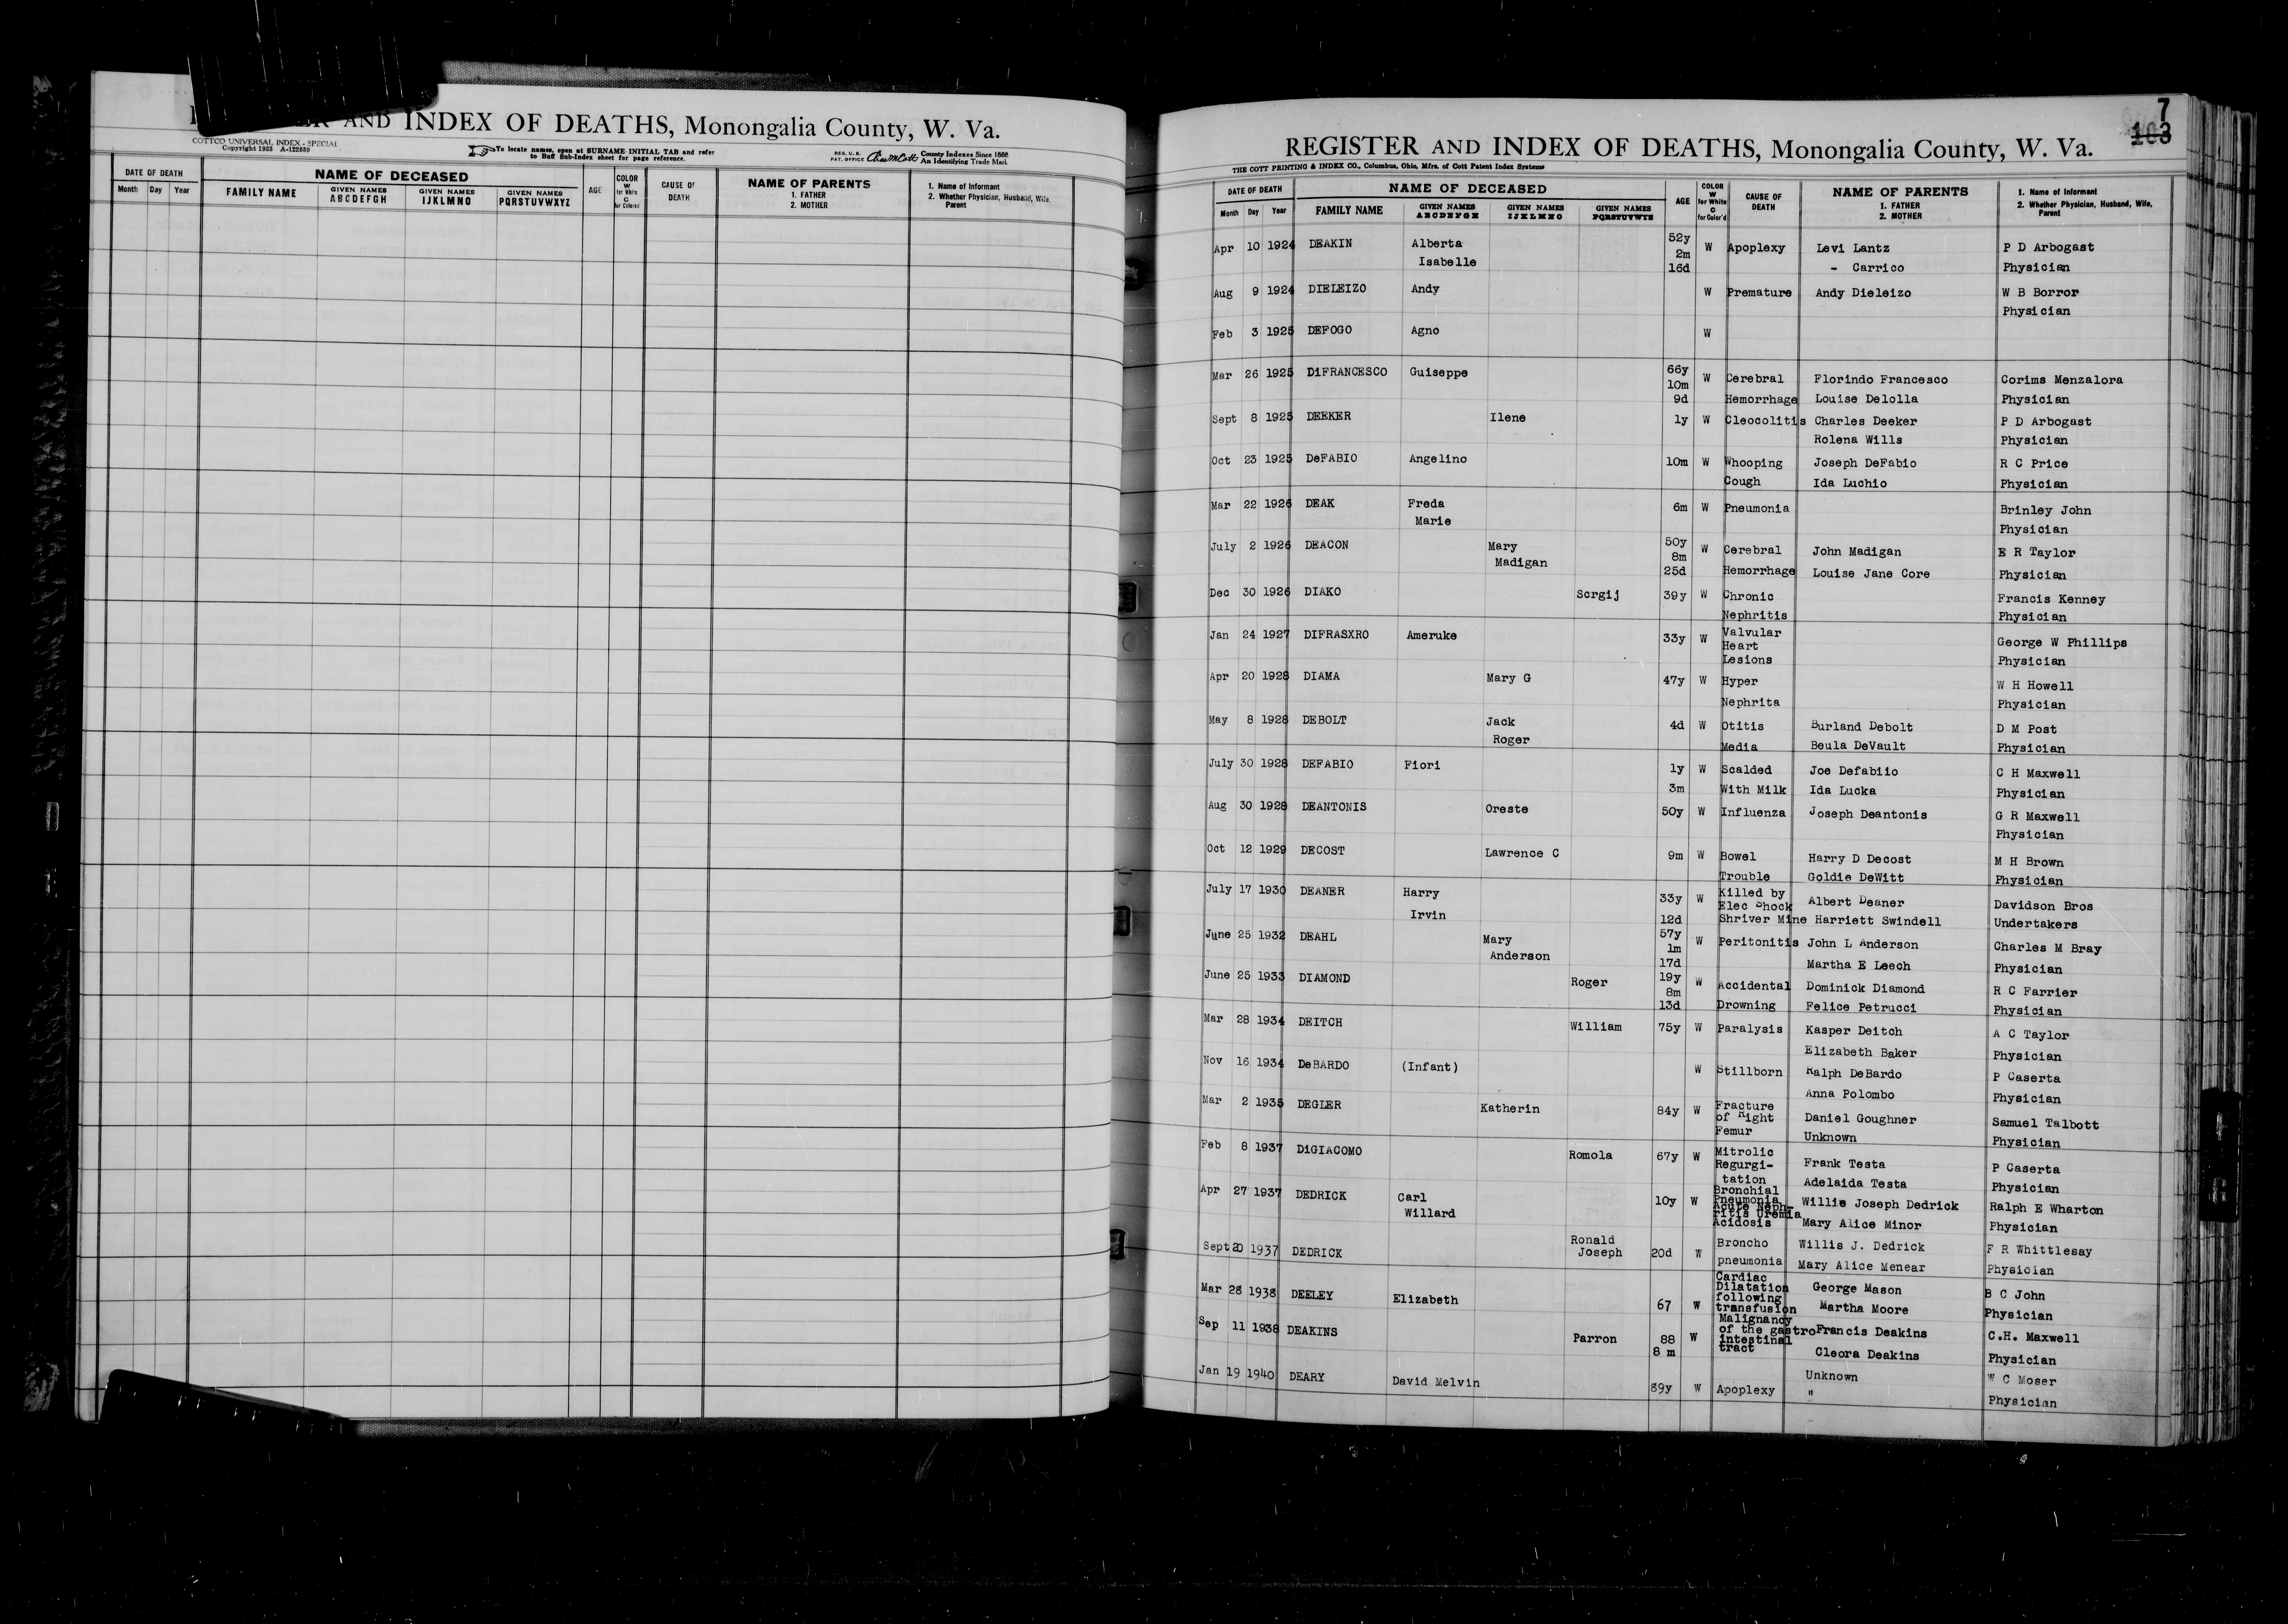 AND INDEX OF DEATHS, Monongalia County, W. Va.
COTTCO UNIVERSAL INDEX - SPECIAL
Copyright 1933 A-122559
To locate names, open at SURNAME INITIAL TAB and refer
to Buff Sub-Index sheet for page reference.
REG. U. S. PAT. OFFICE County Indexes Since 1888 An Identifying Trade Mark
DATE OF DEATH NAME OF DECEASED AGE COLOR W for White C for Colored CAUSE OF DEATH NAME OF PARENTS 1. FATHER 2. MOTHER 1. Name of Informant 2. Whether Physician, Husband, Wife, Parent
Month Day Year FAMILY NAME GIVEN NAMES ABCDEFGH GIVEN NAMES IJKLMNO GIVEN NAMES PQRSTUVWXYZ
7
103
REGISTER AND INDEX OF DEATHS, Monongalia County, W. Va.
THE COTT PRINTING & INDEX CO., Columbus, Ohio, Mfrs. of Cott Patent Index Systems
DATE OF DEATH NAME OF DECEASED AGE COLOR W for White C for Color'd CAUSE OF DEATH NAME OF PARENTS 1. FATHER 2. MOTHER 1. Name of Informant 2. Whether Physician, Husband, Wife, Parent
Month Day Year FAMILY NAME GIVEN NAMES ABCDEFGH GIVEN NAMES IJKLMNO GIVEN NAMES PQRSTUVWYZ
Apr 10 1924 DEAKIN Alberta 52y W Apoplexy Levi Lantz P D Arbogast
Isabelle 2m
16d - Carrico Physician
Aug 9 1924 DIELEIZO Andy W Premature Andy Dieleizo W B Borror
Physician
Feb 3 1925 DEFOGO Agno W
Mar 26 1925 DiFRANCESCO Guiseppe 66y W Cerebral Florindo Francesco Corims Menzalora
10m
9d Hemorrhage Louise Delolla Physician
Sept 8 1925 DEEKER Ilene 1y W Cleocolitis Charles Deeker P D Arbogast
Rolena Wills Physician
Oct 23 1925 DeFABIO Angelino 10m W Whooping Joseph DeFabio R C Price
Cough Ida Luchio Physician
Mar 22 1926 DEAK Freda 6m W Pneumonia Brinley John
Marie Physician
July 2 1926 DEACON Mary 50y W Cerebral John Madigan E R Taylor
Madigan 8m
25d Hemorrhage Louise Jane Core Physician
Dec 30 1926 DIAKO Scrgij 39y W Chronic Francis Kenney
Nephritis Physician
Jan 24 1927 DIFRASXRO Ameruke 33y W Valvular George W Phillips
Heart
Lesions Physician
Apr 20 1928 DIAMA Mary G 47y W Hyper W H Howell
Nephrita Physician
May 8 1928 DEBOLT Jack 4d W Otitis Burland Debolt D M Post
Roger Media Beula DeVault Physician
July 30 1928 DEFABIO Fiori 1y W Scalded Joe Defabiio C H Maxwell
3m With Milk Ida Lucka Physician
Aug 30 1928 DEANTONIS Oreste 50y W Influenza Joseph Deantonis G R Maxwell
Physician
Oct 12 1929 DECOST Lawrence C 9m W Bowel Harry D Decost M H Brown
Trouble Goldie DeWitt Physician
July 17 1930 DEANER Harry 33y W Killed by Albert Deaner Davidson Bros
Elec Shock
Irvin 12d Shriver Mine Harriett Swindell Undertakers
June 25 1932 DEAHL Mary 57y W Peritonitis John L Anderson Charles M Bray
Anderson 1m
17d Martha E Leech Physician
June 25 1933 DIAMOND Roger 19y W Accidental Dominick Diamond R C Farrier
8m
13d Drowning Felice Petrucci Physician
Mar 28 1934 DEITCH William 75y W Paralysis Kasper Deitch A C Taylor
Elizabeth Baker Physician
Nov 16 1934 DeBARDO (Infant) W Stillborn Ralph DeBardo P Caserta
Anna Polombo Physician
Mar 2 1935 DEGLER Katherin 84y W Fracture Daniel Goughner Samuel Talbott
of Right
Femur Unknown Physician
Feb 8 1937 DiGIACOMO Romola 67y W Mitrolic Frank Testa P Caserta
Regurgi-
tation Adelaida Testa Physician
Apr 27 1937 DEDRICK Carl 10y W Bronchial Willis Joseph Dedrick Ralph E Wharton
Willard Pneumonia
Acute Neph-
ritis Uremia
Acidosis Mary Alice Minor Physician
Sept 20 1937 DEDRICK Ronald 20d W Broncho Willis J. Dedrick F R Whittlesay
Joseph pneumonia Mary Alice Menear Physician
Mar 28 1938 DEELEY Elizabeth 67 W Cardiac George Mason B C John
Dilatation
following
transfusion Martha Moore Physician
Sep 11 1938 DEAKINS Parron 88 W Malignancy
of the gastro Francis Deakins C.H. Maxwell
intestinal
8 m tract Cleora Deakins Physician
Jan 19 1940 DEARY David Melvin 89y W Apoplexy Unknown W C Moser
" Physician